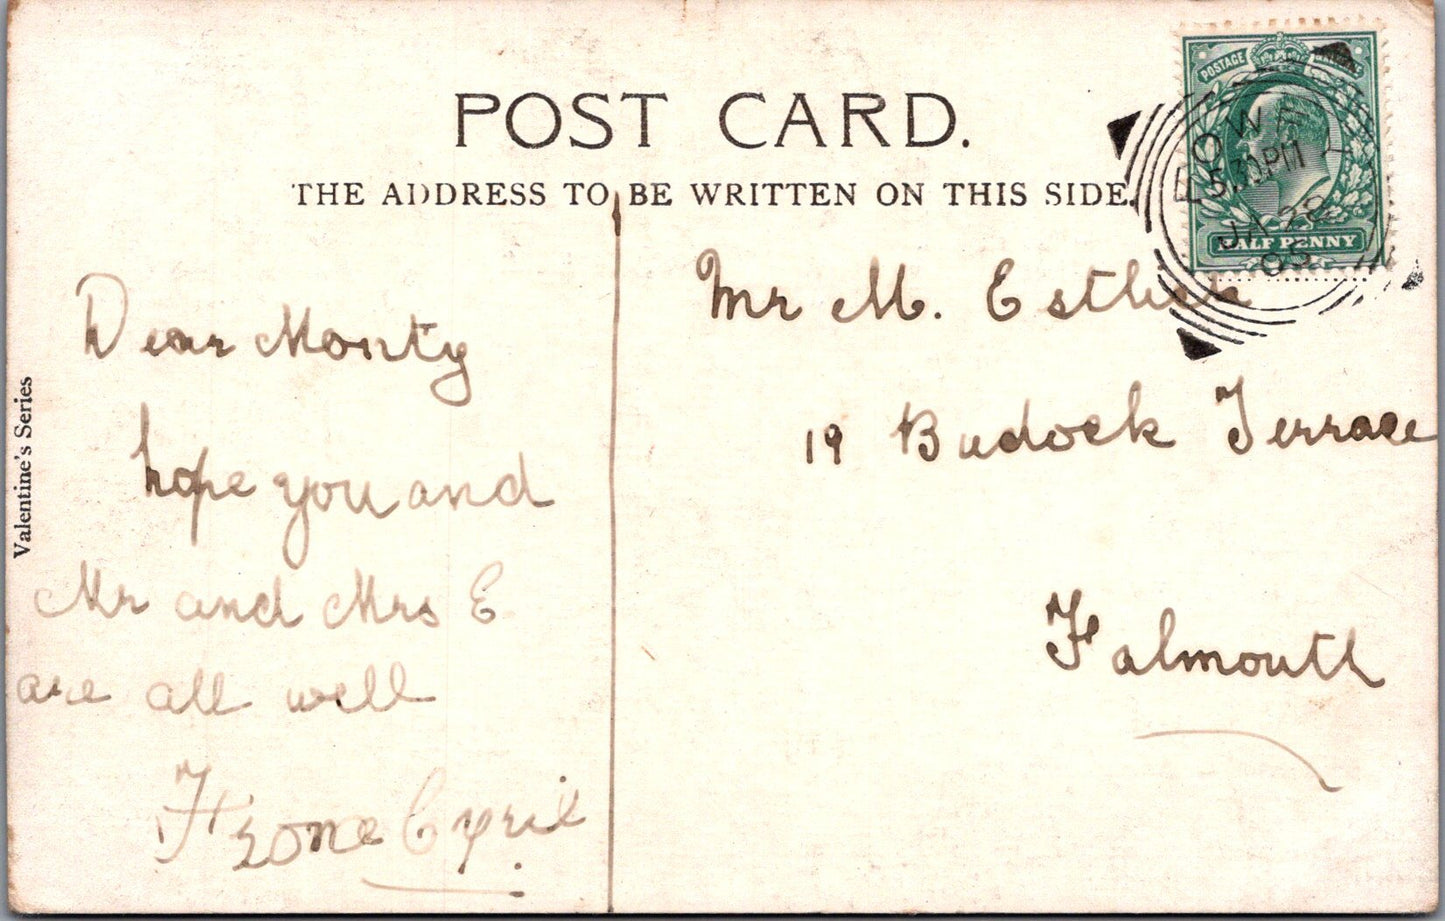 POST CARD.
THE ADDRESS TO BE WRITTEN ON THIS SIDE.
POSTAGE
HALF PENNY
FOWEY
5.30PM
JA 22
05
Valentine's Series
Dear Monty
hope you and
Mr and Mrs E
are all well
Frome Cyril
Mr M. Esthick
19 Budock Terrace
Falmouth